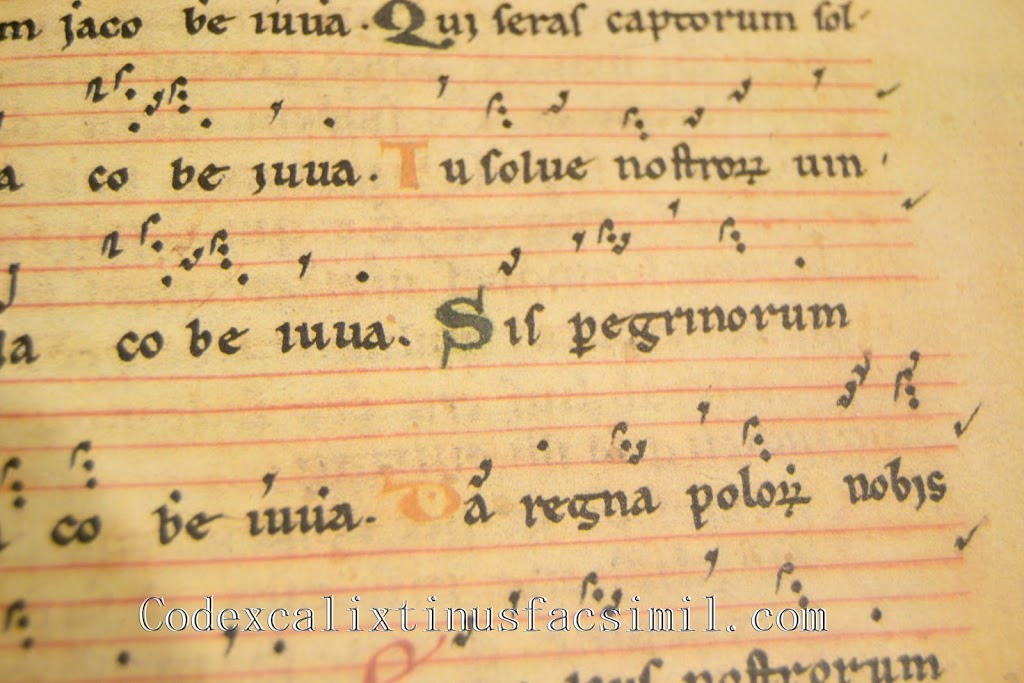 m jaco be iuua. Qui seras captorum sol
a co be iuua. Tu solue nostroꝝ uin
la co be iuua. Sis ꝑegrinorum
co be iuua. Da regna poloꝝ nobis
Codexcalixtinusfacsimil.com
nostrorum